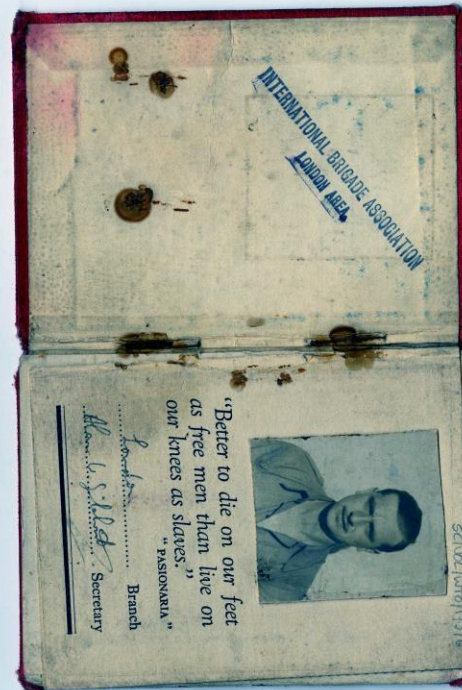 INTERNATIONAL BRIGADE ASSOCIATION
LONDON AREA
“Better to die on our feet
as free men than live on
our knees as slaves.”
“PASIONARIA”
London Branch
Secretary